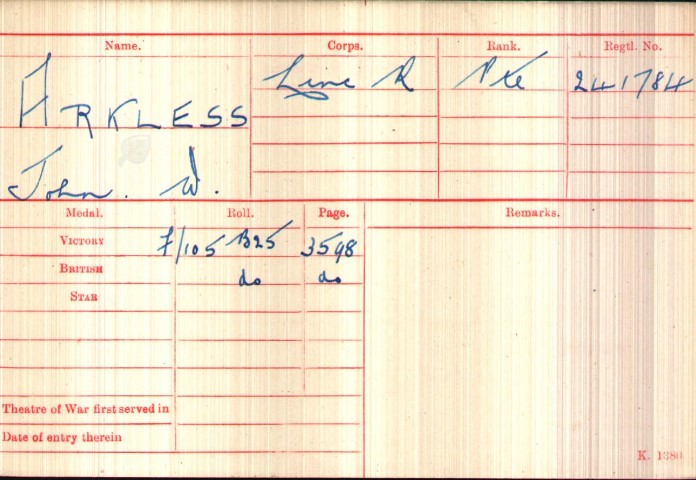 Name. Corps. Rank. Regtl. No.
ARKLESS Linc R Pte 241784
John. W.
Medal. Roll. Page. Remarks.
VICTORY F/105 B25 3598
BRITISH do do
STAR
Theatre of War first served in
Date of entry therein
K. 1380